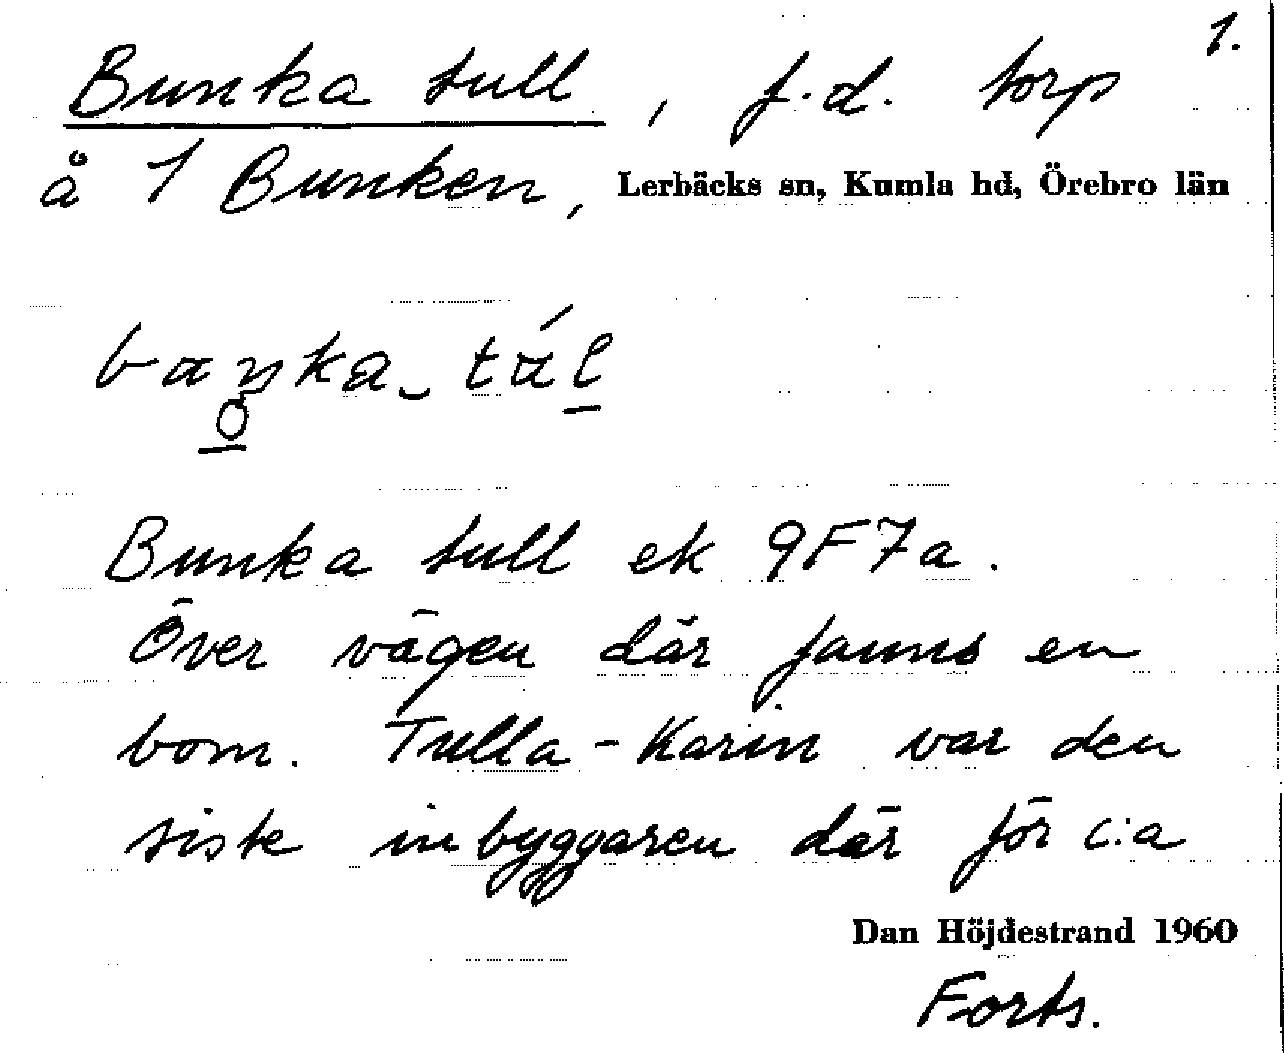 1.
Bunka tull, f.d. torp
å 1 Bunken, Lerbäcks sn, Kumla hd, Örebro län
Bunka tull ek 9F7a.
Över vägen där fanns en
bom. Tulla-Karin var den
siste inbyggaren där för c:a
Dan Höjdestrand 1960
Forts.